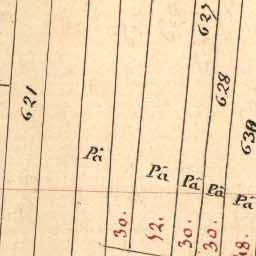 621
627
628
630
Pâ
Pâ
Pâ
Pâ
Pâ
30.
52.
30.
30.